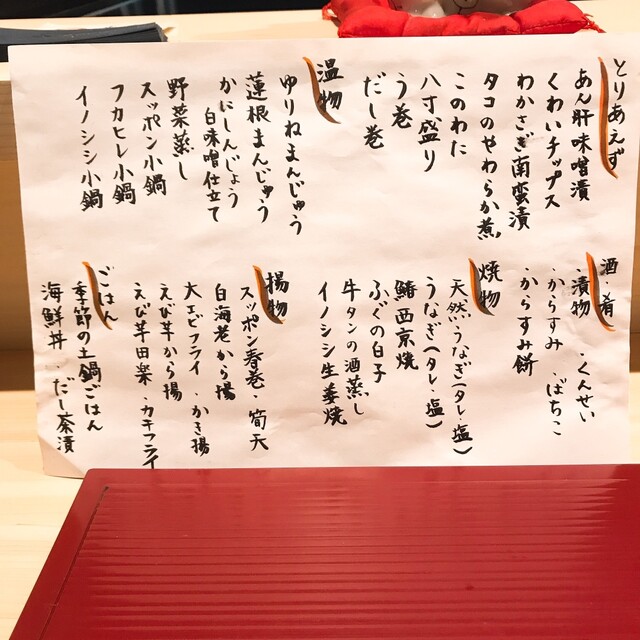 とりあえず
あん肝味噌漬
くわいチップス
わかさぎ南蛮漬
タコのやわらか煮
このわた
八寸盛り
う巻
だし巻
温物
ゆりねまんじゅう
蓮根まんじゅう
かにしんじょう
白味噌仕立て
野菜蒸し
スッポン小鍋
フカヒレ小鍋
イノシシ小鍋
酒・肴
漬物・くんせい
・からすみ・ばちこ
・からすみ餅
焼物
天然うなぎ(タレ・塩)
うなぎ(タレ・塩)
鰆西京焼
ふぐの白子
牛タンの酒蒸し
イノシシ生姜焼
揚物
スッポン春巻・筍天
白海老から揚
大エビフライ・かき揚
えび芋から揚
えび芋田楽・カキフライ
ごはん
季節の土鍋ごはん
海鮮丼・だし茶漬